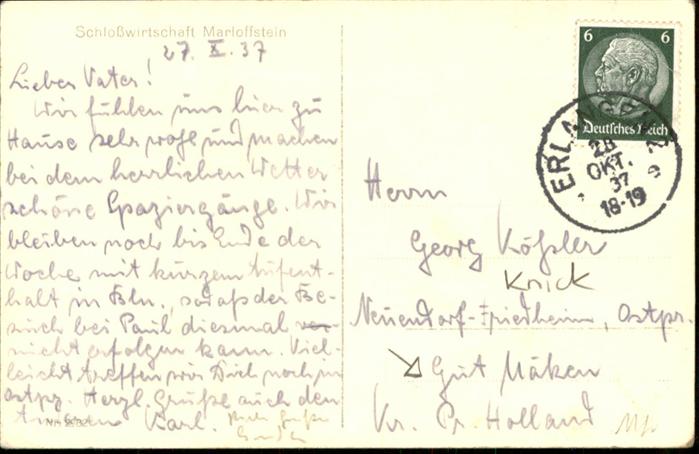 Schloßwirtschaft Marloffstein
27. X. 37
Lieber Vater!
Wir fühlen uns hier zu
Hause sehr wohl und machen
bei dem herrlichen Wetter
schöne Spaziergänge. Wir
bleiben noch bis Ende der
Woche mit kurzem Aufent-
halt in Bln., sodaß der Be-
such bei Paul diesmal
nicht erfolgen kann. Viel-
leicht treffen wir Dich noch in
Ostpr. Herzl. Grüße auch den
Karl.
6 6
Deutsches Reich
ERLANGEN
28
OKT.
37
18-19
Herrn
Georg Kößler
Knick
Neuendorf-Friedheim, Ostpr.
Gut Mäken
Kr. Pr. Holland